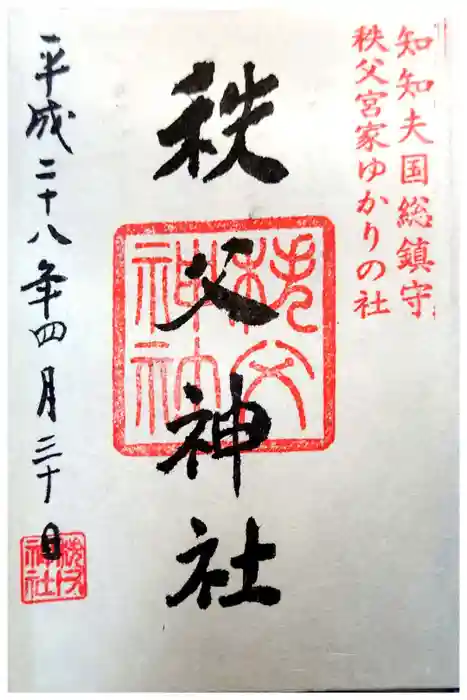 知知夫国総鎮守
秩父宮家ゆかりの社
秩父神社
秩父
神社
平成二十八年四月三十日
秩父
神社